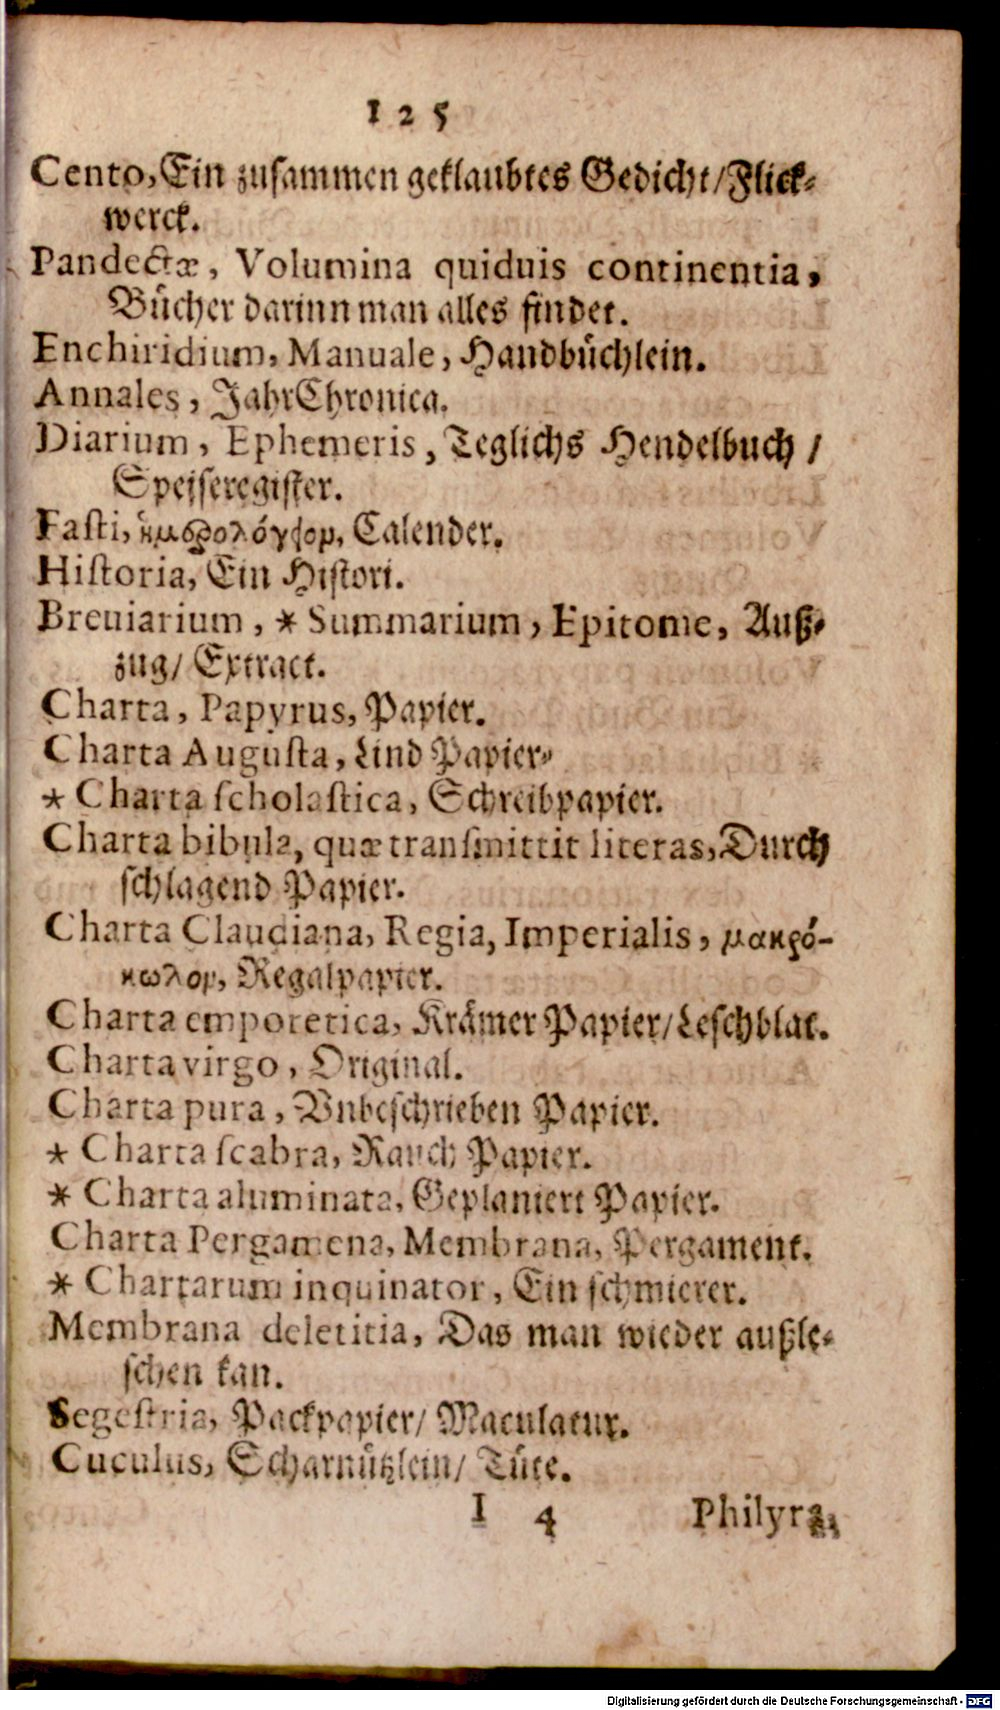 125
Cento, Ein zusammen geklaubtes Gedicht/Flick-
werck.
Pandectæ, Volumina quiduis continentia,
Bücher darinn man alles findet.
Enchiridium, Manuale, Handbüchlein.
Annales, JahrChronica.
Diarium, Ephemeris, Teglichs Hendelbuch /
Speiseregister.
Fasti, ἡμερολόγιον, Calender.
Historia, Ein Histori.
Breuiarium, * Summarium, Epitome, Auß-
zug/ Extract.
Charta, Papyrus, Papier.
Charta Augusta, Lind Papier-
* Charta scholastica, Schreibpapier.
Charta bibula, quæ transmittit literas, Durch
schlagend Papier.
Charta Claudiana, Regia, Imperialis, μακρό-
κωλον, Regalpapier.
Charta emporetica, Krämer Papier/Leschblat.
Charta virgo, Original.
Charta pura, Vnbeschrieben Papier.
* Charta scabra, Rauch Papier.
* Charta aluminata, Geplaniert Papier.
Charta Pergamena, Membrana, Pergament.
* Chartarum inquinator, Ein schmierer.
Membrana deletitia, Das man wieder außle-
schen kan.
Segestria, Packpapier/ Maculatur.
Cuculus, Scharnützlein/ Tüte.
I 4 Philyra,
Digitalisierung gefördert durch die Deutsche Forschungsgemeinschaft - DFG